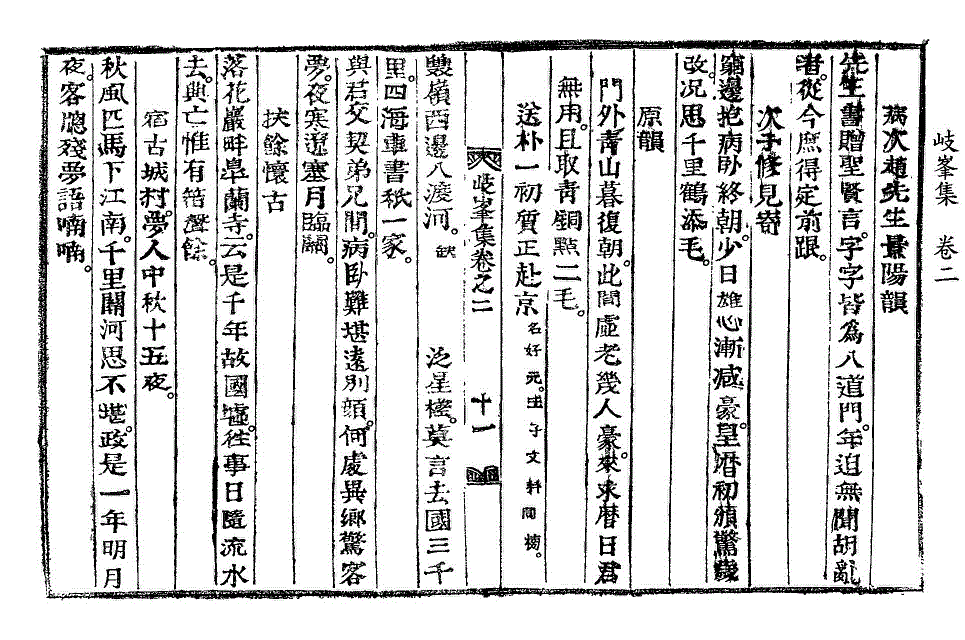 岐峯集　卷二
病次趙先生景陽韻
先生書贈聖賢言。字字皆爲入道門。年迫無聞胡亂
者。從今庶得定前跟。
次子修見寄
窮邊抱病卧終朝。少日雄心漸减豪。皇曆初頒驚歲
改。况思千里鶴添毛。
原韻
門外靑山暮復朝。此間虛老幾人豪。來求曆日君
無用。且取靑銅點二毛。
送朴一初質正赴京 名好元。壬子文科同榜。
岐峯集卷之二　十一
雙嶺西邊八渡河。缺 泛星槎。莫言去國三千
里。四海車書秖一家。
與君交契弟兄間。病卧難堪遠別顔。何處異鄉驚客
夢。夜寒遼塞月臨關。
扶餘懷古
落花巖畔皐蘭寺。云是千年故國墟。徃事日隨流水
去。興亡惟有笛聲餘。
宿古城村。夢人中秋十五夜。
秋風匹馬下江南。千里關河思不堪。政是一年明月
夜。客牕殘夢語喃喃。